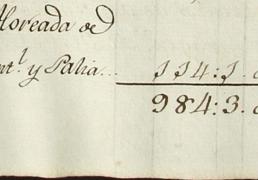 floreada de
nt.l y Palia... 114:1.
984:3.